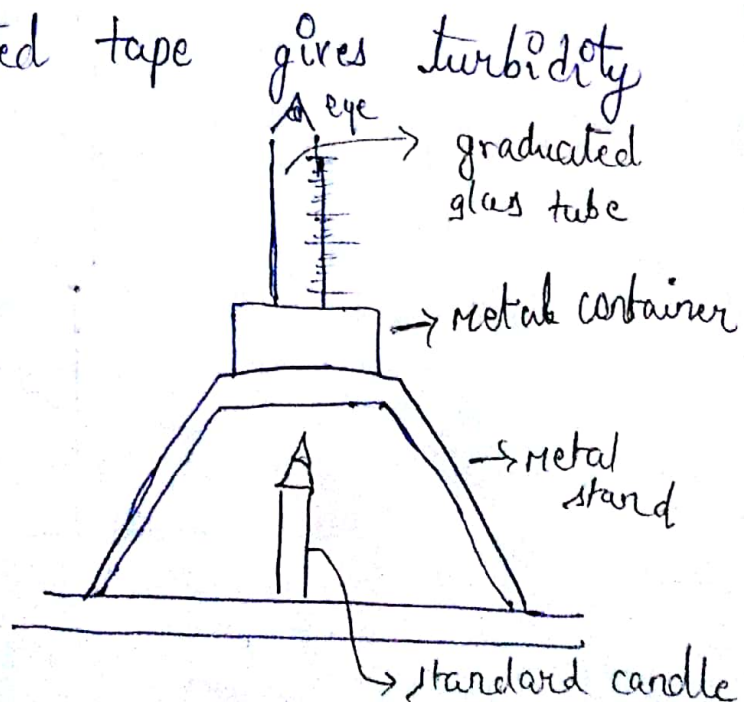 ed tape gives turbidity
eye
graduated
glas tube
metal container
metal
stand
standard candle